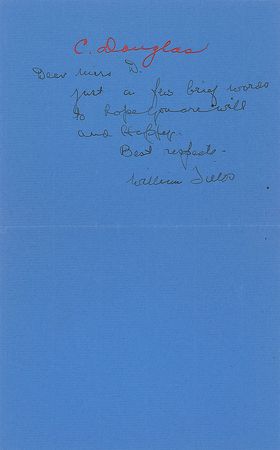 C. Douglas
Dear miss D.
just a few brief words
to hope you are will
and Happy.
Best respects -
William